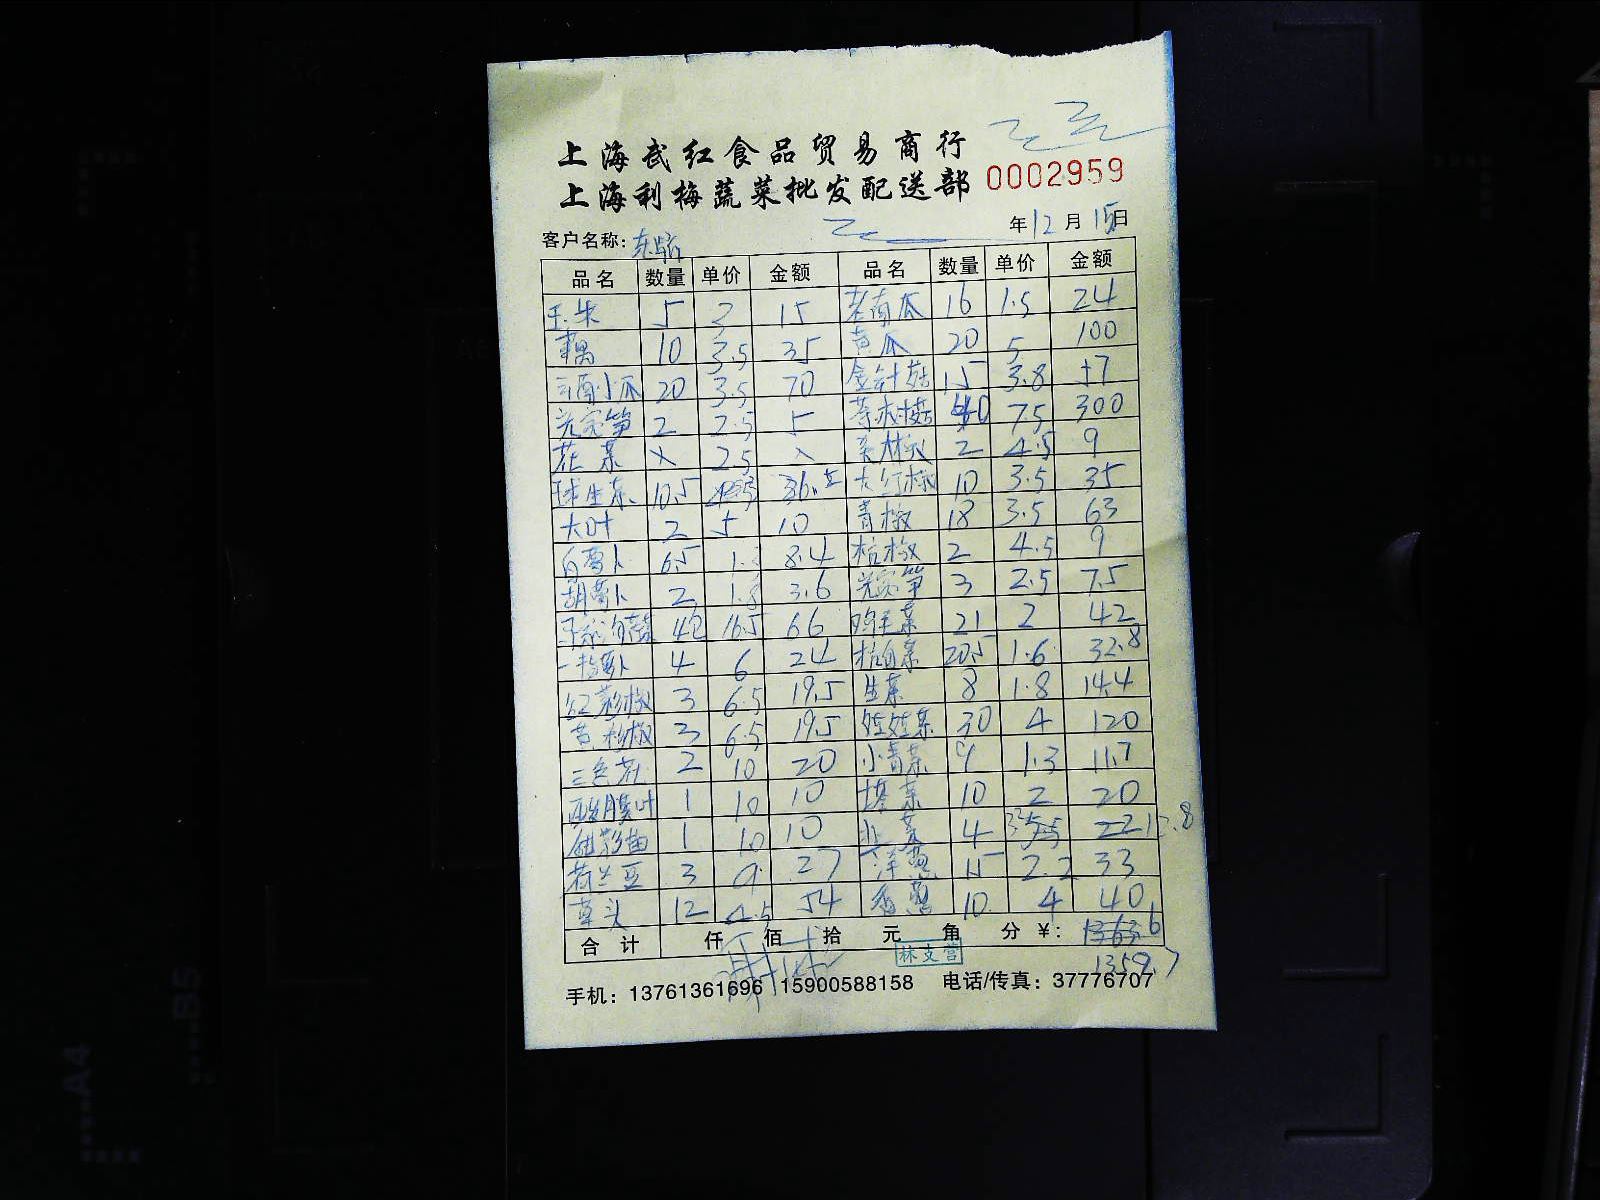 上海武红食品贸易商行
上海利梅蔬菜批发配送部 0002959
年12月15日
客户名称:
品名 数量 单价 金额 品名 数量 单价 金额
玉米 5 3 15 老南瓜 16 1.5 24
藕 10 3.5 35 黄瓜 20 5 100
小瓜 20 3.5 70 金针菇 15 3.8 57
2 2.5 5 茶树菇 40 7.5 300
花菜 × 25 × 2 4.5 9
球生菜 10.5 36.5 大红椒 10 3.5 35
大叶 2 5 10 青椒 18 3.5 63
白萝卜 6.5 1.3 8.4 杭椒 2 4.5 9
胡萝卜 2 1.8 3.6 3 2.5 7.5
16.5 66 鸡毛菜 21 2 42
萝卜 4 6 24 杭白菜 20.5 1.6 32.8
红彩椒 3 6.5 19.5 生菜 8 1.8 14.4
黄彩椒 3 6.5 19.5 娃娃菜 30 4 120
三色花 2 10 20 小青菜 9 1.3 11.7
叶 1 10 10 塔菜 10 2 20
苗 1 10 10 韭菜 4 22
荷兰豆 3 9 27 洋葱 15 2.2 33
草头 12 4.5 54 香葱 10 4 40
合计 仟 佰 拾 元 角 分 ¥: 1363.6
1359.7
林支营
手机: 13761361696 15900588158 电话/传真: 37776707